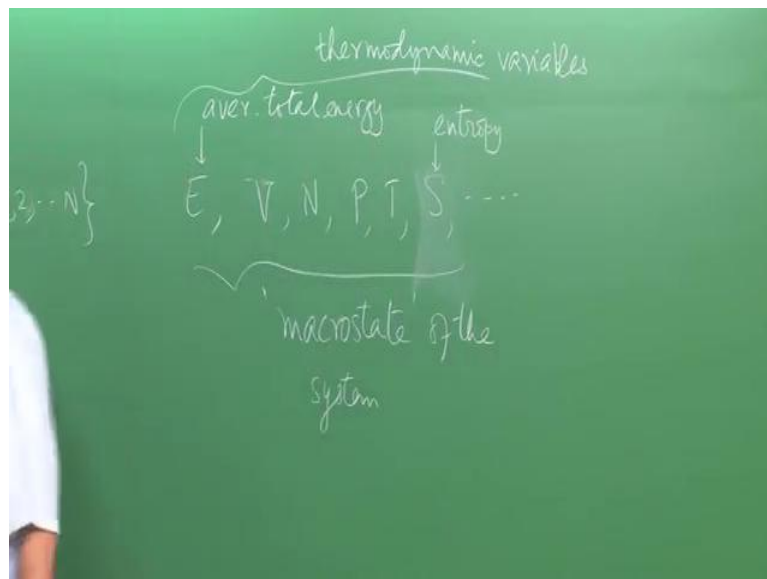 thermodynamic variables
aver. total energy
entropy
,2,..N}
E, V, N, P, T, S, ....
'macrostate' of the
system